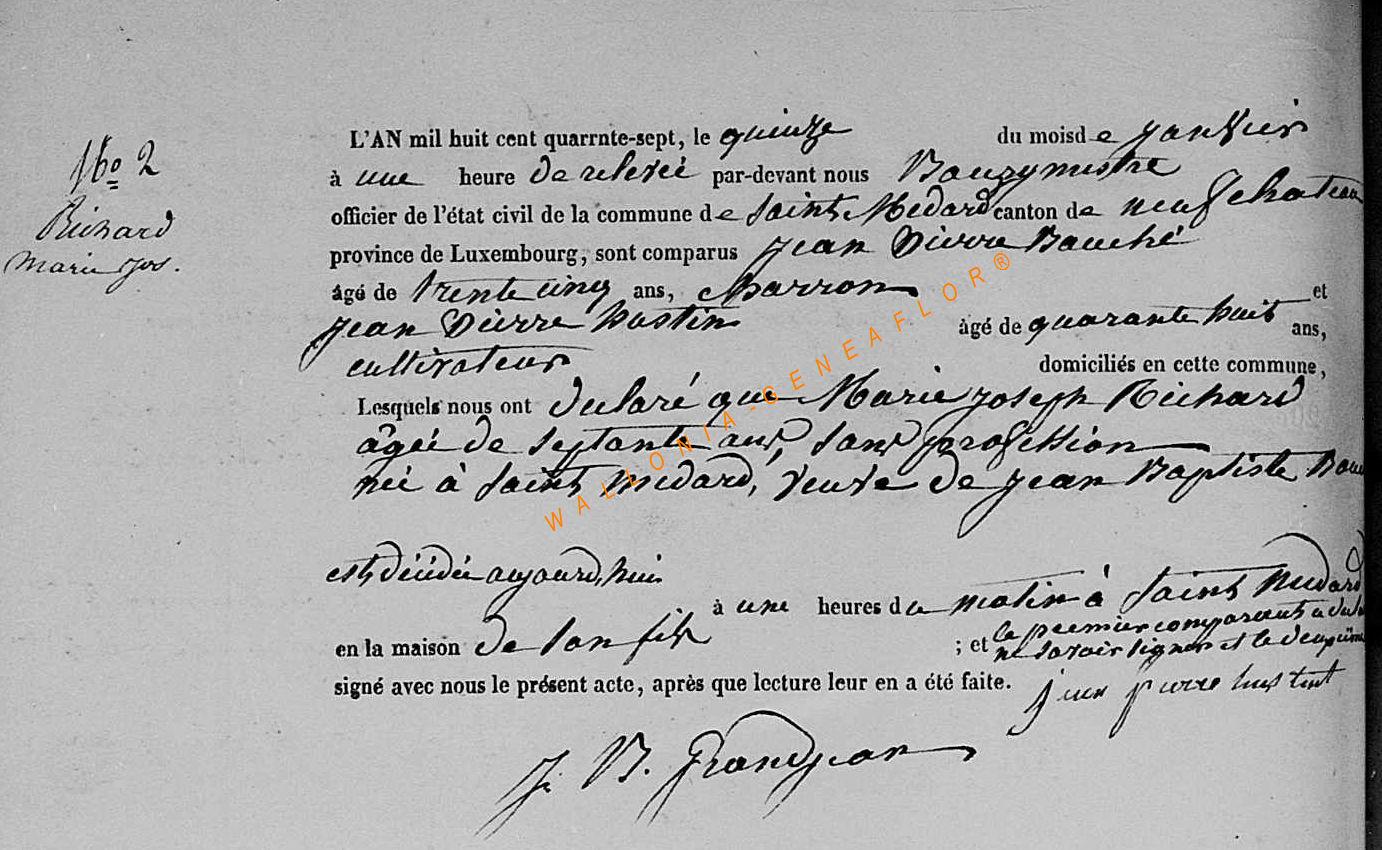 N° 2
Richard
Marie Jos.
L'AN mil huit cent quarrnte-sept, le quinze du moisde janvier
à une heure de relevée par-devant nous Bourgmestre
officier de l'état civil de la commune de Saint Médard canton de neufchateau
province de Luxembourg, sont comparus Jean Pierre Bauché
âgé de trente cinq ans, charron et
Jean Pierre hustin âgé de quarante huit ans,
cultivateur domiciliés en cette commune,
Lesquels nous ont declaré que Marie joseph Richard
âgée de septante ans, sans profession
née à Saint médard, veuve de jean Baptiste
est décédée aujourd'hui
à une heures du matin à Saint médard
en la maison de son fils ; et le premier comparant a
ne savoir signer et le deuxième
signé avec nous le présent acte, après que lecture leur en a été faite.
jean pierre
J. B. Grandjean
WALLONIA-GENEAFLOR®